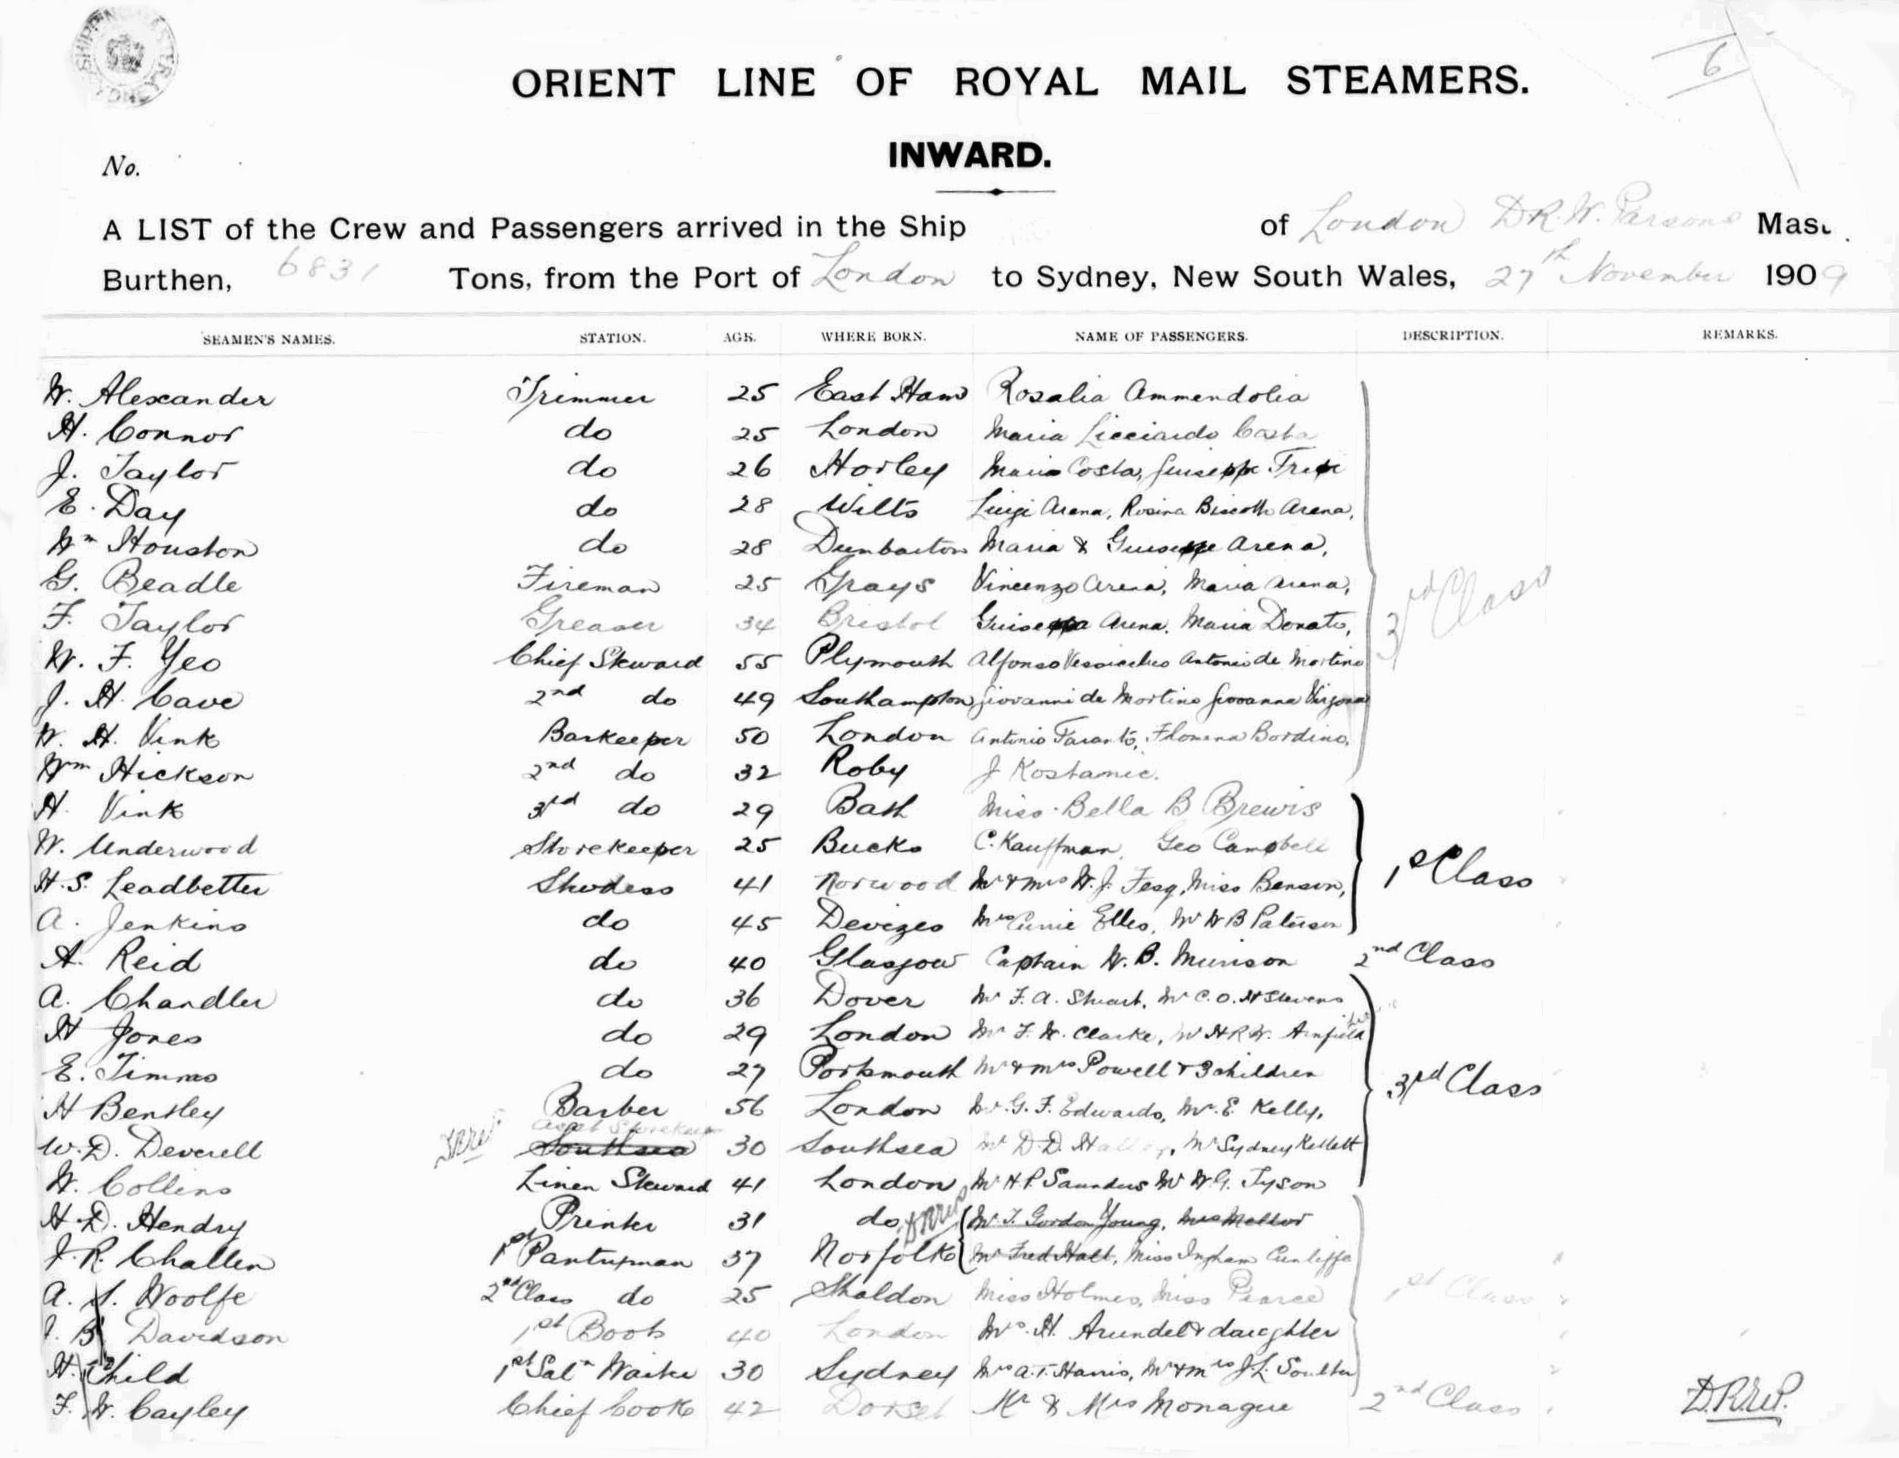 6
ORIENT LINE OF ROYAL MAIL STEAMERS.
INWARD.
No.
A LIST of the Crew and Passengers arrived in the Ship of London D.R.W. Parsons Mast
Burthen, 6831 Tons, from the Port of London to Sydney, New South Wales, 27th November 1909
SEAMEN'S NAMES. STATION. AGE. WHERE BORN. NAME OF PASSENGERS. DESCRIPTION. REMARKS.
W. Alexander Trimmer 25 East Ham Rosalia Ammendolia
H. Connor do 25 London Maria Licciardo Costa
J. Taylor do 26 Horley Maria Costa, Guiseppe
E. Day do 28 Wilts Luigi Arena, Rosina Arena,
Wm Houston do 28 Dumbarton Maria & Guiseppe Arena,
G. Beadle Fireman 25 Grays Vincenzo Arena, Maria Arena,
F. Taylor Greaser 34 Bristol Guiseppa Arena, Maria Donato, 3rd Class
W. F. Yeo Chief Steward 55 Plymouth Alfonso Antonio de Martino
J. H. Cave 2nd do 49 Southampton Giovanni de Martino Giovanna Virgona
W. H. Vink Barkeeper 50 London Antonio Taranto, Filomena Bordino,
Wm Hickson 2nd do 32 Roby J Kostamic.
H. Vink 3rd do 29 Bath Miss Bella B Brewis
W. Underwood Storekeeper 25 Bucks C. Kauffman, Geo Campbell
H. S. Leadbetter Stwdess 41 Norwood Mr & Mrs W. J. Fesq, Miss Benson, 1st Class
A. Jenkins do 45 Devizes Mrs Currie Elles, Mr W B Paterson
A. Reid do 40 Glasgow Captain W. B. Murison 2nd Class
A. Chandler do 36 Dover Mr F. A. Stuart, Mr C. O. H Stevens
H Jones do 29 London Mr F. W. Clarke, Mr H R W.
E. Timms do 27 Portsmouth Mr & Mrs Powell & 3 children 3rd Class
H Bentley Barber 56 London Mr. G. F. Edwards, Mr. E. Kelly,
Asst Storekeeper
W. D. Deverell Southsea 30 Southsea Mr D. D. Mr Sydney Kellett
W. Collins Linen Steward 41 London Mr H. P. Saunders Mr W. G. Tyson
H. D. Hendry Printer 31 do DRWP Mr T. Gordon Young, Mrs Mellor
J. R. Challen 1st Pantryman 37 Norfolk Mr Fred Halt, Miss Ingham Cunliffe
A. S. Woolfe 2nd Class do 25 Shaldon Miss Holmes, Miss Pearce 1st Class
J. B. Davidson 1st Boots 40 London Mrs. H. Arundel & daughter
H. Child 1st Saln Waiter 30 Sydney Mrs A. T. Harris, Mr & Mrs J. L. Soulter
F. W. Cayley Chief Cook 42 Dorset Mr & Mrs Monague 2nd Class D.R.W.P.